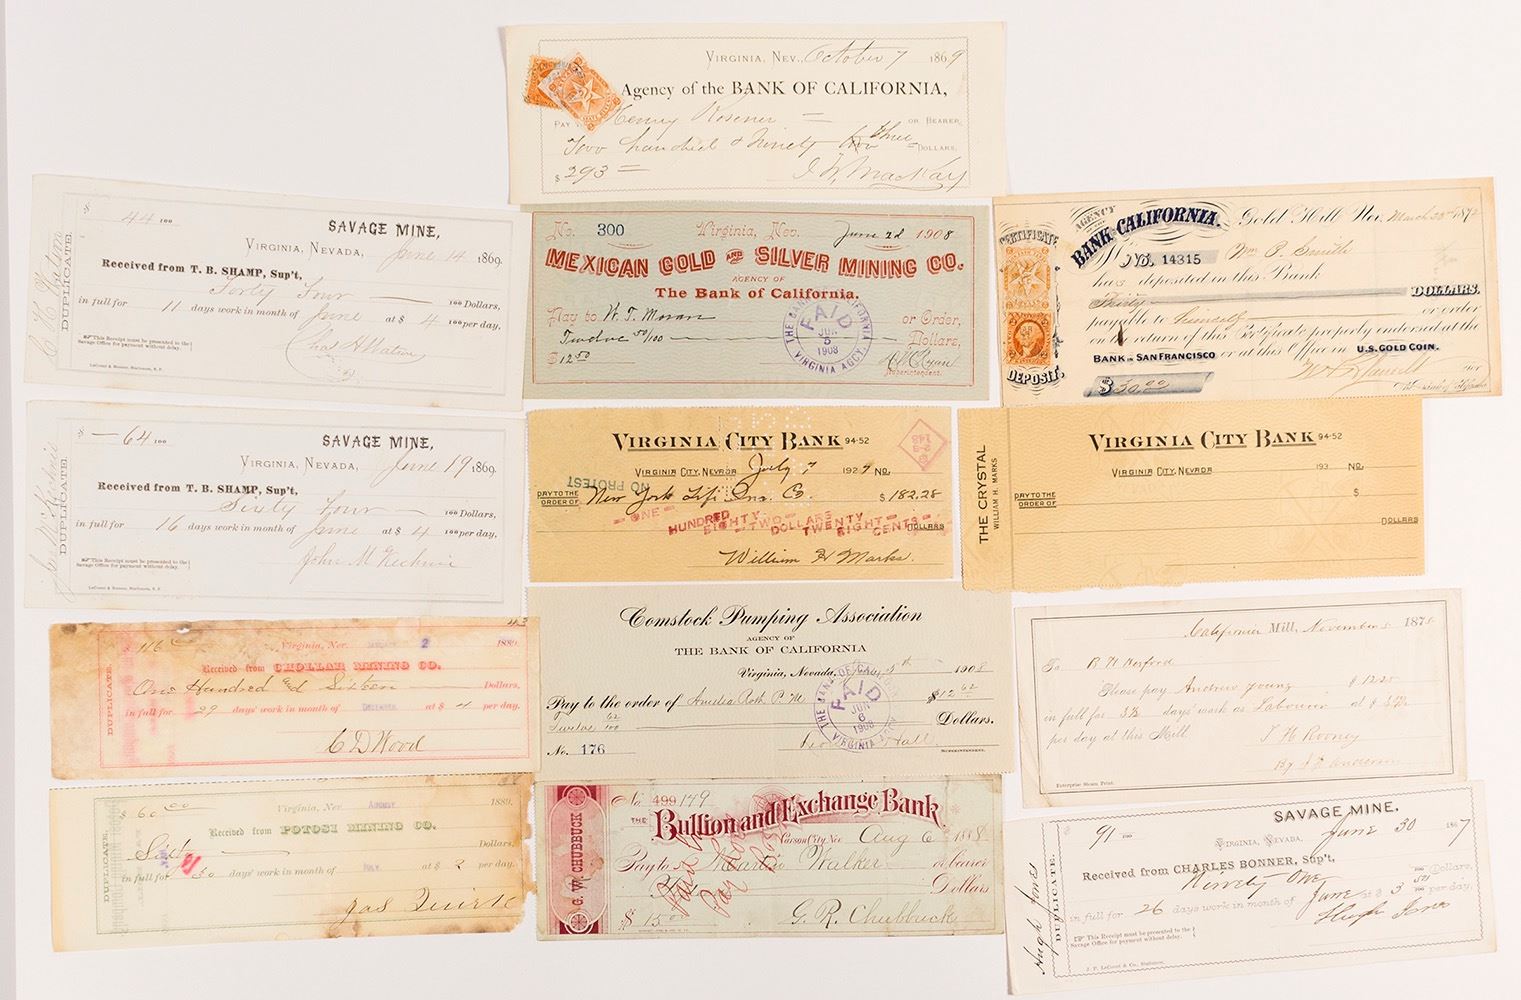 VIRGINIA, NEV., October 7 1869
Agency of the BANK OF CALIFORNIA,
PAY Henry Rosener = OR BEARER,
Two hundred & Ninety three DOLLARS,
$ 293 = J W Mackay
$ 44 100
SAVAGE MINE,
VIRGINIA, NEVADA, June 14 1869.
Received from T. B. SHAMP, Sup't,
Forty Four 100 Dollars,
in full for 11 days work in month of June at $ 4 100 per day,
This Receipt must be presented to the
Savage Office for payment without delay.
DUPLICATE.
No. 300 Virginia, Nev. June 2d 1908
MEXICAN GOLD AND SILVER MINING CO.
AGENCY OF
The Bank of California.
Pay to W. T. Moran or Order,
Twelve 50/100 Dollars,
$ 12 50
Superintendent.
THE BANK OF CALIFORNIA
PAID
JUN
5
1908
VIRGINIA AGCY.
CERTIFICATE
DEPOSIT.
AGENCY
BANK OF CALIFORNIA.
Gold Hill Nev. March 1872
No. 14315 Wm P. Smith
has deposited in this Bank
Thirty DOLLARS.
payable to himself or order
on the return of this Certificate properly endorsed at the
BANK IN SAN FRANCISCO or at this Office in U.S. GOLD COIN.
$ 30.00
$ 64 100
SAVAGE MINE,
VIRGINIA, NEVADA, June 19 1869.
Received from T. B. SHAMP, Sup't,
Sixty Four 100 Dollars,
in full for 16 days work in month of June at $ 4 100 per day,
John McKechnie
This Receipt must be presented to the
Savage Office for payment without delay.
DUPLICATE.
VIRGINIA CITY BANK 94-52
VIRGINIA CITY, NEVADA July 1929 NO.
NO PROTEST
PAY TO THE
ORDER OF New York Life Ins. Co. $ 182.28
ONE HUNDRED EIGHTY-TWO DOLLARS TWENTY EIGHT CENTS DOLLARS
William H Marks.
THE CRYSTAL
WILLIAM H. MARKS
VIRGINIA CITY BANK 94-52
VIRGINIA CITY, NEVADA 193 NO.
PAY TO THE
ORDER OF $
DOLLARS
$ 116
Virginia, Nev. 2 1889.
Received from CHOLLAR MINING CO.
One Hundred and Sixteen Dollars,
in full for 29 days' work in month of DECEMBER at $ 4 per day.
C D Wood
DUPLICATE.
Comstock Pumping Association
AGENCY OF
THE BANK OF CALIFORNIA
Virginia, Nevada, 5th 1908
Pay to the order of Amelia Roth P. M. $ 12 62
Twelve 62/100 Dollars.
No. 176
SUPERINTENDENT.
THE BANK OF CALIFORNIA
PAID
JUN
6
1908
VIRGINIA AGCY
California Mill, November 187
To
Please pay Andrew Young $
in full for 3½ days' work as Labourer at $
per day at this Mill.
T H Rooney
Enterprise Steam Print.
$ 60 00
Virginia, Nev. AUGUST 1889.
Received from POTOSI MINING CO.
Sixty Dollars,
in full for 30 days' work in month of JULY at $ 2 per day.
DUPLICATE.
G. W. CHUBBUCK
No. 499149
THE Bullion and Exchange Bank.
Carson City, Nev Aug 6 1888
Pay to Martin Walker or bearer
Dollars
$ 15 00 G. R. Chubbuck
$ 91 100
SAVAGE MINE,
VIRGINIA, NEVADA, June 30 1867
Received from CHARLES BONNER, Sup't,
Ninety One 100 Dollars,
in full for 26 days work in month of June at $ 3 50/100 per day,
Hugh Jones
This Receipt must be presented to the
Savage Office for payment without delay.
DUPLICATE.
Hugh Jones